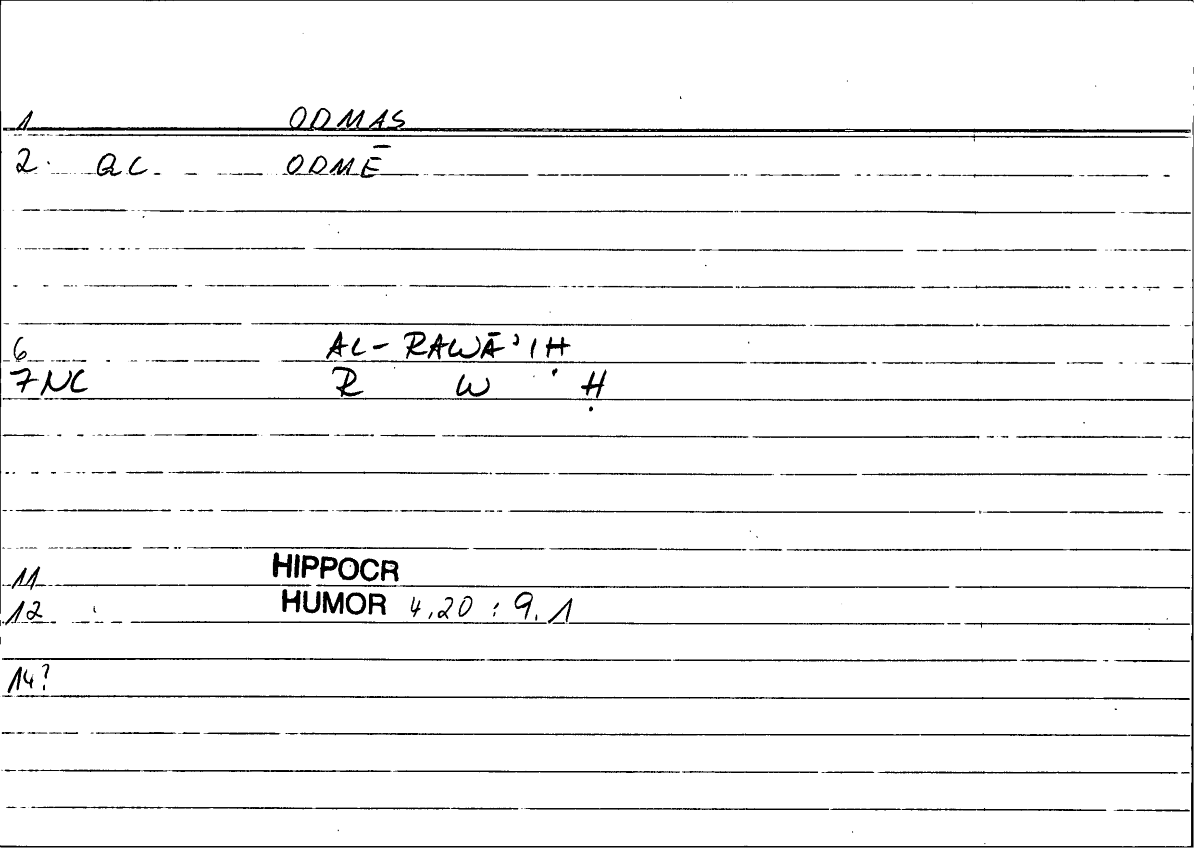 1 ODMAS
2. QC ODMĒ
6 AL-RAWĀ'IḤ
7 NC R W Ḥ
11 HIPPOCR
12 HUMOR 4,20 : 9,1
14?